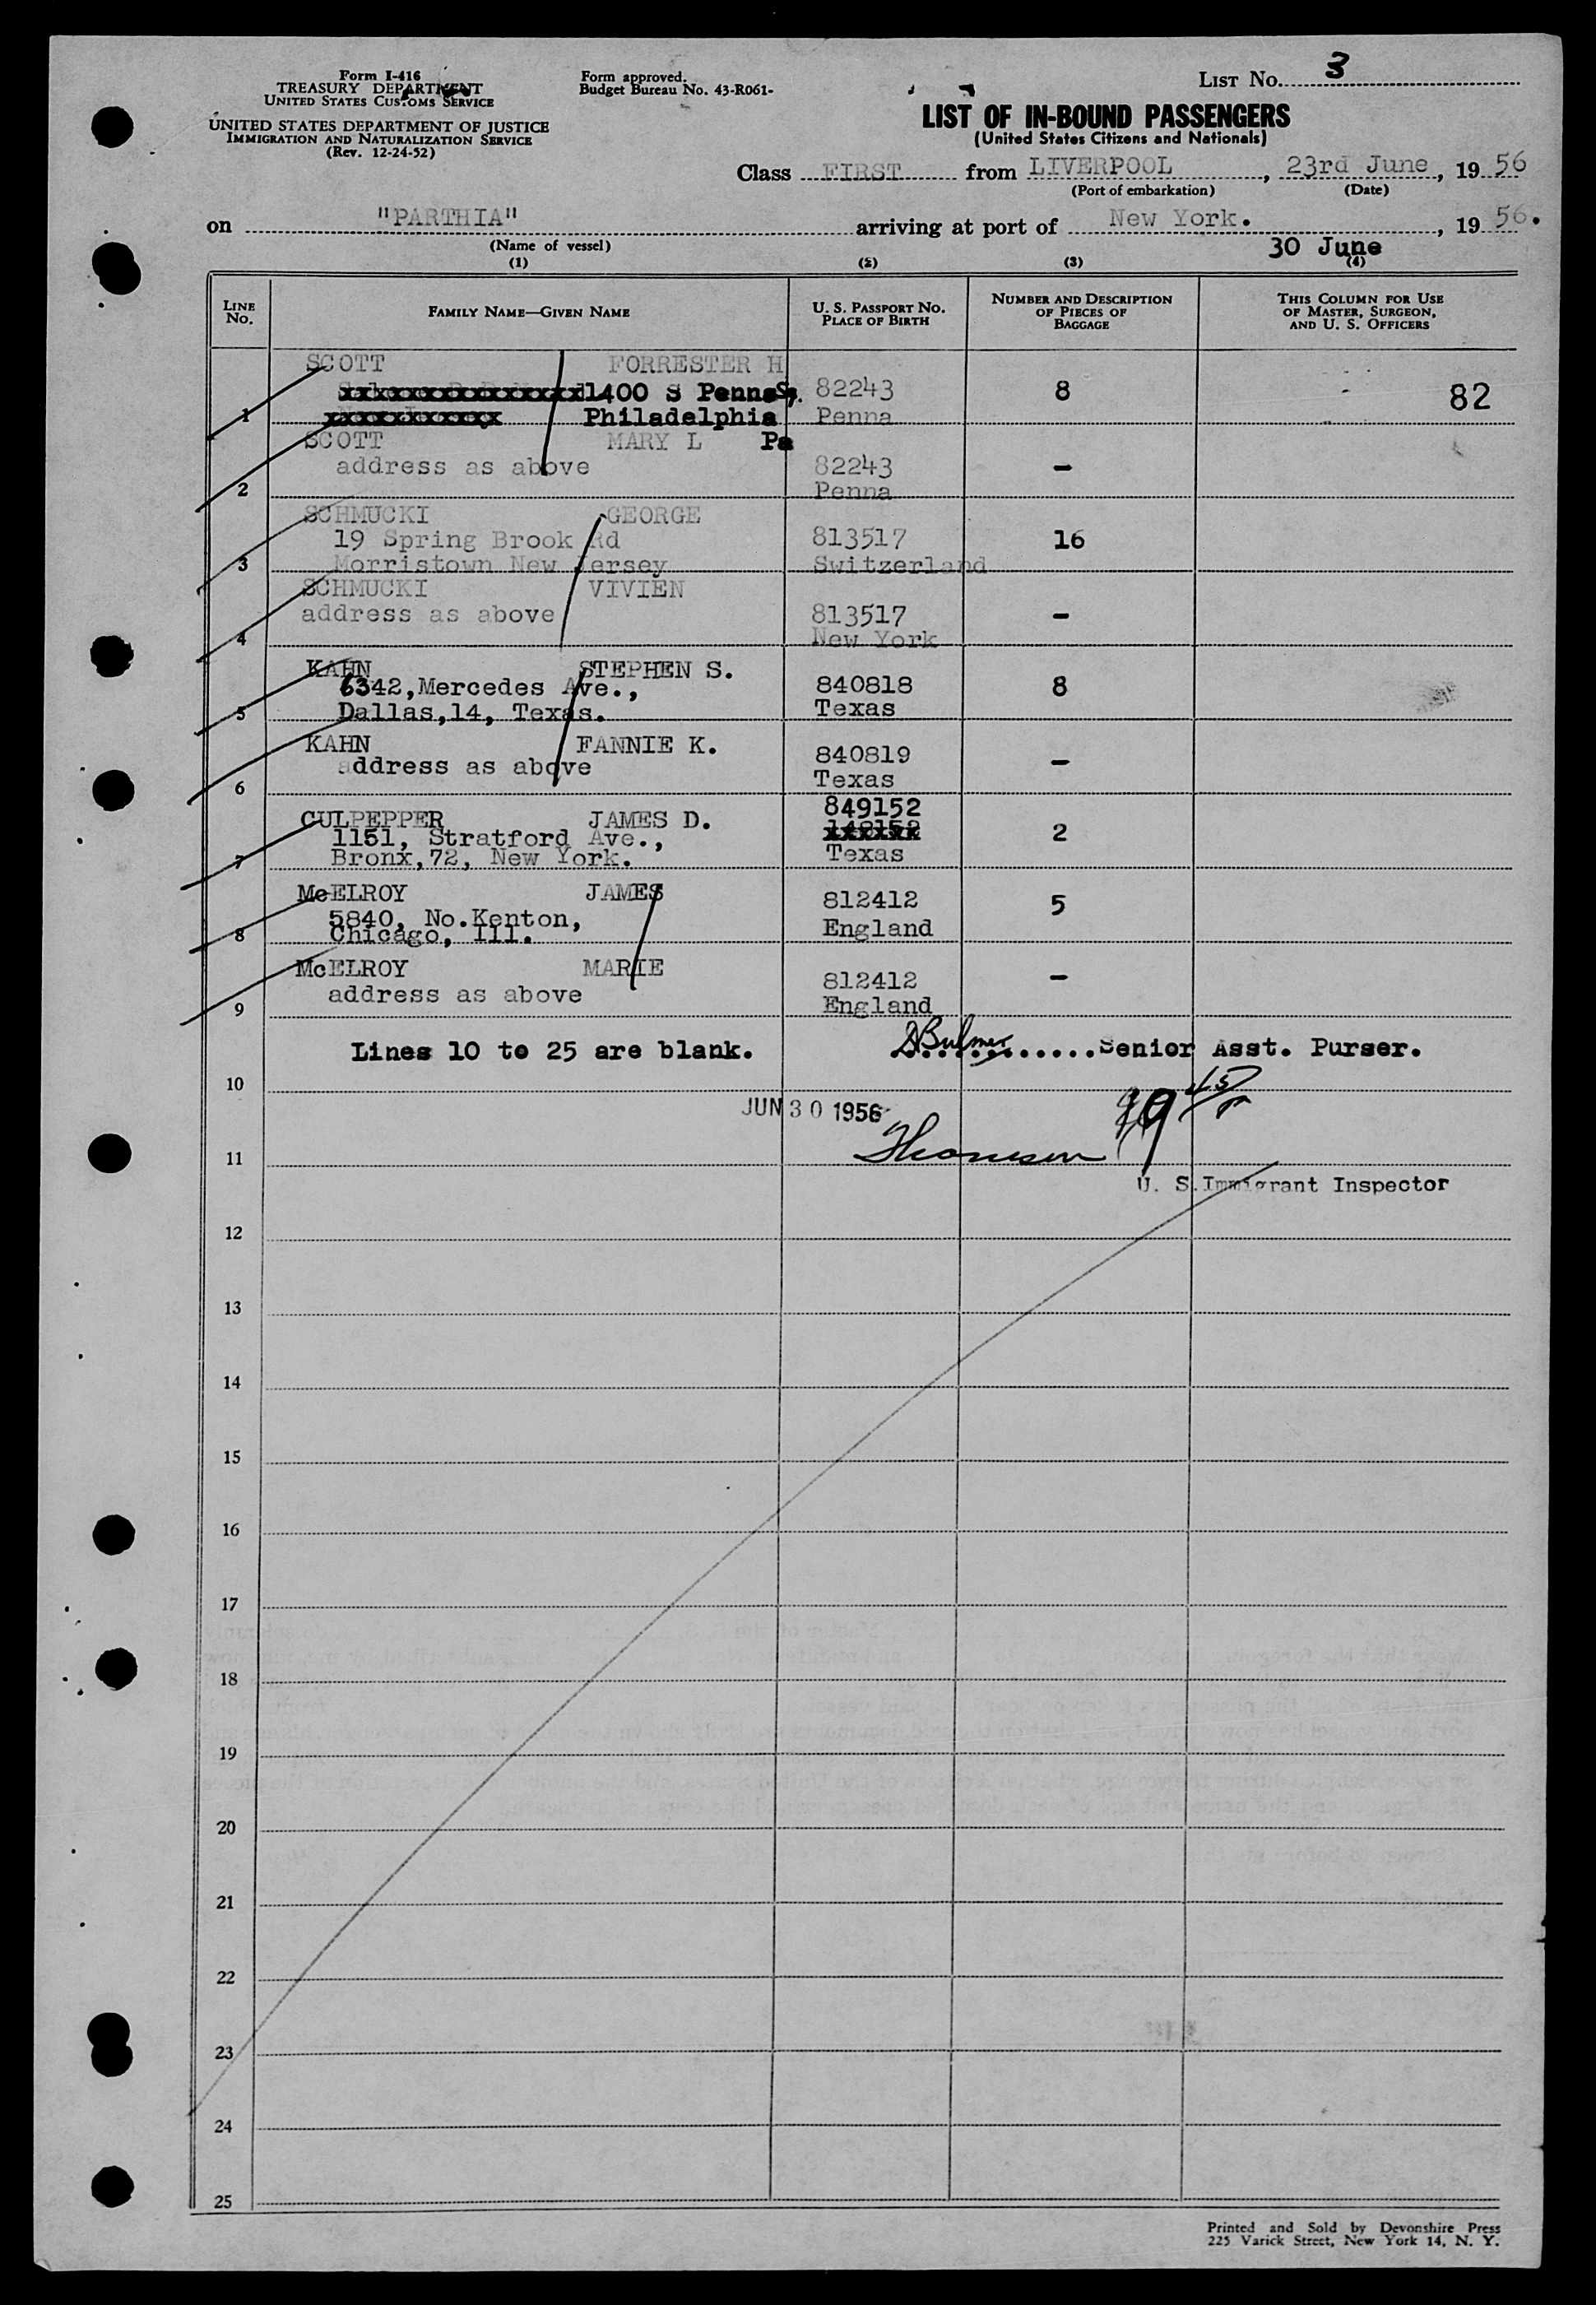 Form I-416
TREASURY DEPARTMENT
UNITED STATES CUSTOMS SERVICE
UNITED STATES DEPARTMENT OF JUSTICE
IMMIGRATION AND NATURALIZATION SERVICE
(Rev. 12-24-52)
Form approved.
Budget Bureau No. 43-R061-
LIST NO. 3
LIST OF IN-BOUND PASSENGERS
(United States Citizens and Nationals)
Class FIRST from LIVERPOOL, 23rd June, 1956
(Port of embarkation) (Date)
on "PARTHIA" arriving at port of New York., 1956.
(Name of vessel) 30 June
(1) (2) (3) (4)
LINE NO. FAMILY NAME—GIVEN NAME U. S. PASSPORT NO. PLACE OF BIRTH NUMBER AND DESCRIPTION OF PIECES OF BAGGAGE THIS COLUMN FOR USE OF MASTER, SURGEON, AND U. S. OFFICERS
SCOTT FORRESTER H
1400 S Penns Sq. 82243 8 82
1 Philadelphia Penna
SCOTT MARY L Pa
address as above 82243 -
2 Penna
SCHMUCKI GEORGE
19 Spring Brook Rd 813517 16
3 Morristown New Jersey Switzerland
SCHMUCKI VIVIEN
address as above 813517 -
4 New York
KAHN STEPHEN S.
6342, Mercedes Ave., 840818 8
5 Dallas,14, Texas. Texas
KAHN FANNIE K. 840819
address as above Texas -
6
849152
CULPEPPER JAMES D.
1151, Stratford Ave., 2
7 Bronx,72, New York. Texas
McELROY JAMES 812412 5
5840, No.Kenton,
8 Chicago, Ill. England
McELROY MARIE 812412 -
address as above
9 England
Lines 10 to 25 are blank. Bulmer Senior Asst. Purser.
10
JUN 30 1956
11
U. S. Immigrant Inspector
12
13
14
15
16
17
18
19
20
21
22
23
24
25
Printed and Sold by Devonshire Press
225 Varick Street, New York 14, N. Y.